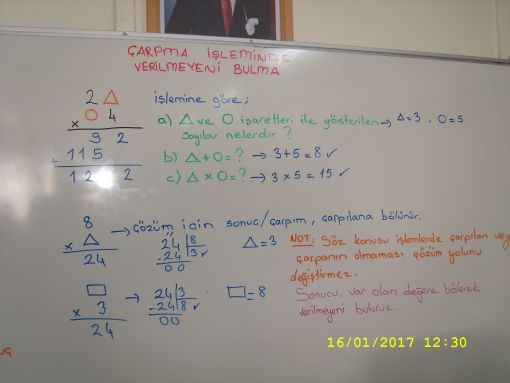 ÇARPMA İŞLEMİNDE
VERİLMEYENİ BULMA
2 △
× O 4
9 2
+ 115
12 2
işlemine göre;
a) △ ve O işaretleri ile gösterilen → △=3, O=5
sayılar nelerdir?
b) △+O=? → 3+5=8 ✓
c) △×O=? → 3×5=15 ✓
8
× △
24
→ çözüm için sonuç/çarpım, çarpılana bölünür.
24 | 8
-24 | 3 ✓
00
△=3
NOT: Söz konusu işlemlerde çarpılan vey
çarpanın olmaması çözüm yolunu
değiştirmez.
□
× 3
24
→ 24 | 3
-24 | 8 ✓
00
□=8
Sonucu, var olan değere bölerek
verilmeyeni buluruz.
16/01/2017 12:30